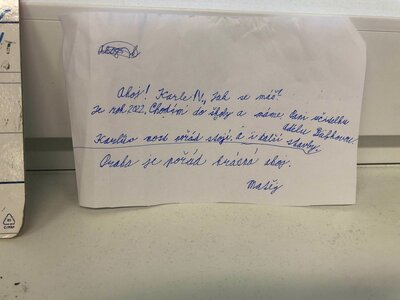 Ahoj! Karle IV., jak se máš?
Je rok 2022, Chodím do školy a máme Paní učitelku
Adélu
Karlův most pořád stojí, a i další stavby.
Praha je pořád krásná ahoj.
Matěj